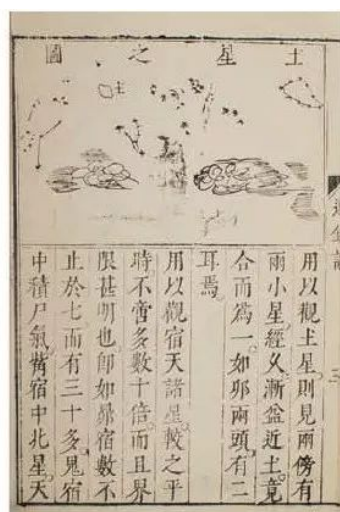 土星之圖
用以觀土星則見兩傍有
兩小星經久漸益近土竟
合而爲一如卵兩頭有二
耳焉
用以觀宿天諸星較之平
時不啻多數十倍而且界
限甚明也卽如昴宿數不
止於七而有三十多鬼宿
中積尸氣觜宿中北星天